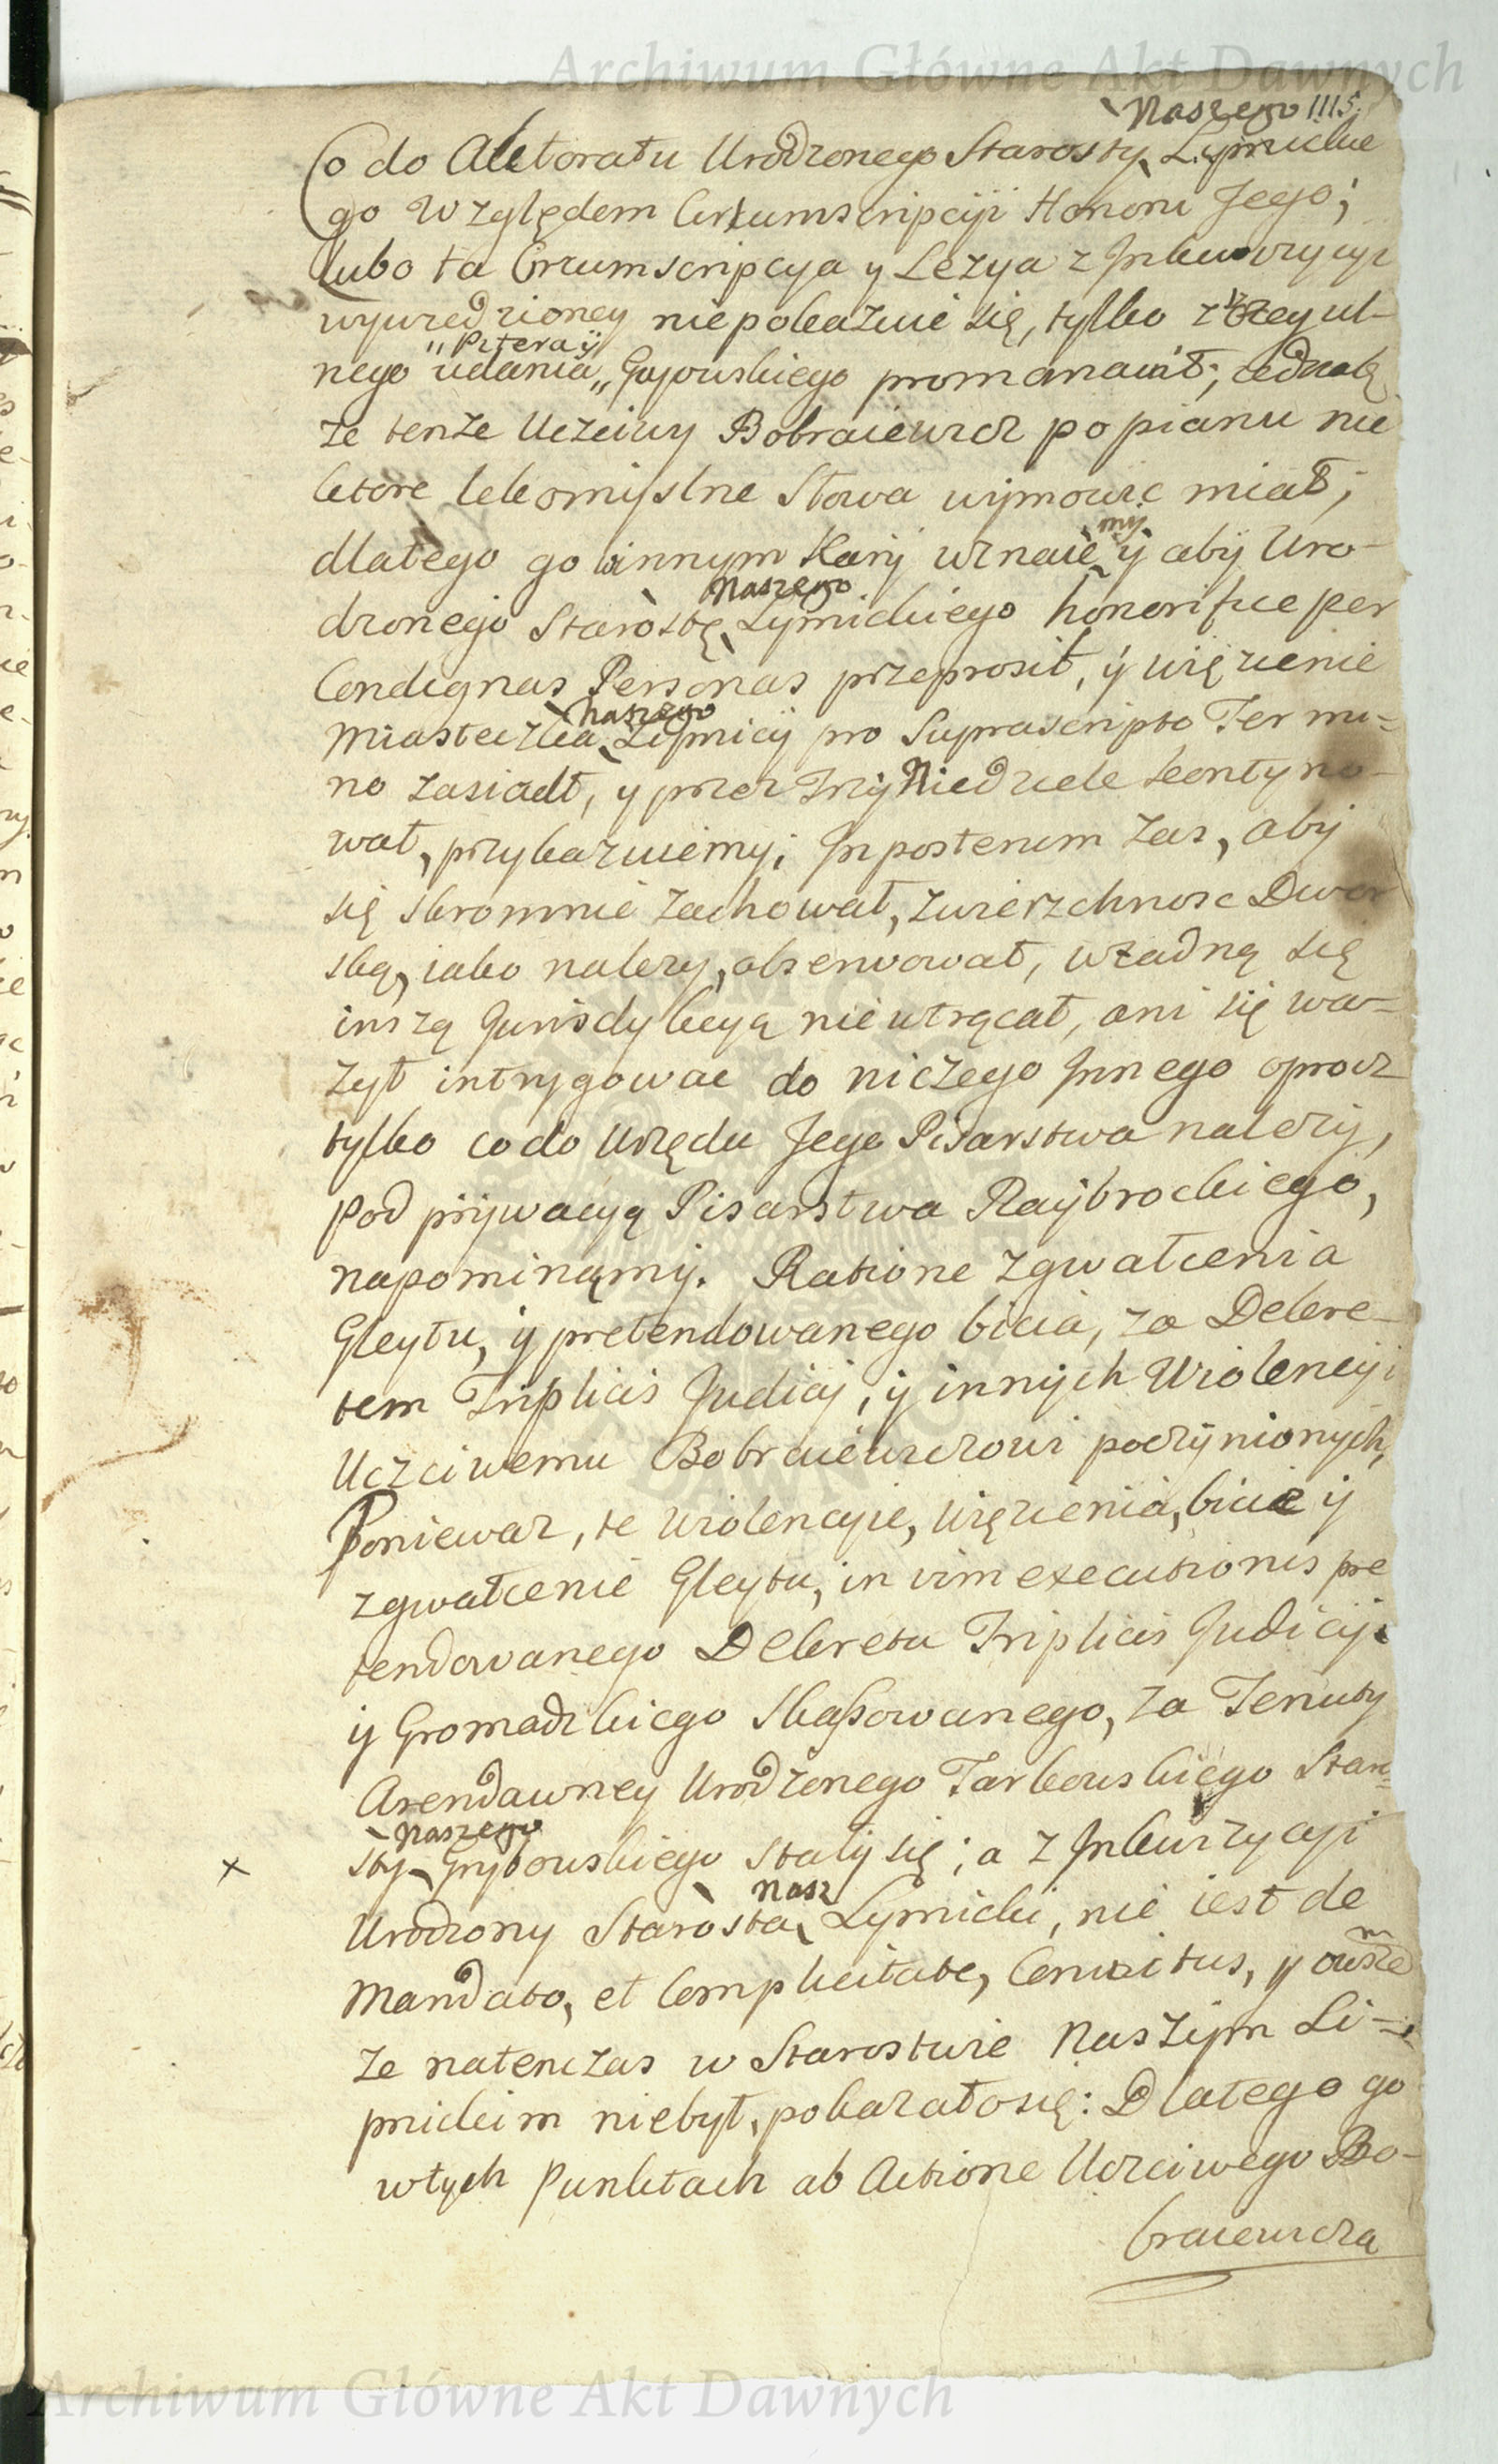 Archiwum Główne Akt Dawnych
Naszego 1115.
Co do Aktoratu Urodzonego Starosty Lipnickie
go Względem Cirkumscripcyi Honoru Jego;
lubo ta Circumscripcya y Lezya z Inkwizycyi
wywiedzioney niepokazuie się, tylko z szczegul-
"Ptera y
nego udania „ Gajowskiego promanawit; jednak
ze tenże Uczciwy Bobraiewicz po pianu nie
ktore lekomyslne Słowa wymowić miał;
my
dlatego go winnym Kary uznaie y aby Uro-
Naszego
dzonego Starostę Lipnickiego honorifice per
Condignas Personas przeprosił, y więzienie
Naszego
Miasteczka Lipnicy pro Suprascripto Termi-
no zasiadł, y przez Trzy Niedziele kontyno-
wał, przykazuiemy; In posterum zas, aby
się skromnie zachował, zwierzchnosc Dwor
ską, iako nalezy, obserwował, wżadną się
inszą Jurisdykcyą niewtrącał, ani się wa-
żył intrygowac do niczego Innego oprocz
tylko co do Urzędu Jego Pisarstwa nalezy,
pod prywacyą Pisarstwa Raybrockiego,
napominamy. Ratione zgwałcenia
Gleytu, y pretendowanego bicia, za Dekre-
tem Triplicis Judicij, y innych Wiolencyi
Uczciwemu Bobraiewiczowi poczynionych,
Poniewaz, te wiolencyie, więzienia, bicie y
zgwałcenie Gleytu, in vim executionis pre
tendowanego Dekretu Triplicis Judicij
y Gromadzkiego skassowanego, za Tenuty
Arendawney Urodzonego Tarkowskiego Staro
Naszego
sty Grybowskiego stały się; a z Inkwizycyi
Nasz
Urodzony Starosta Lipnicki, nie iest de
m
Mandato, et Complicitate, Convictus, y owsze
ze natenczas w Starostwie Naszym Li-
pnickim niebył, pokazało się: Dlatego go
wtych Punktach ab Actione Uczciwego Bo-
braiewicza
Archiwum Główne Akt Dawnych